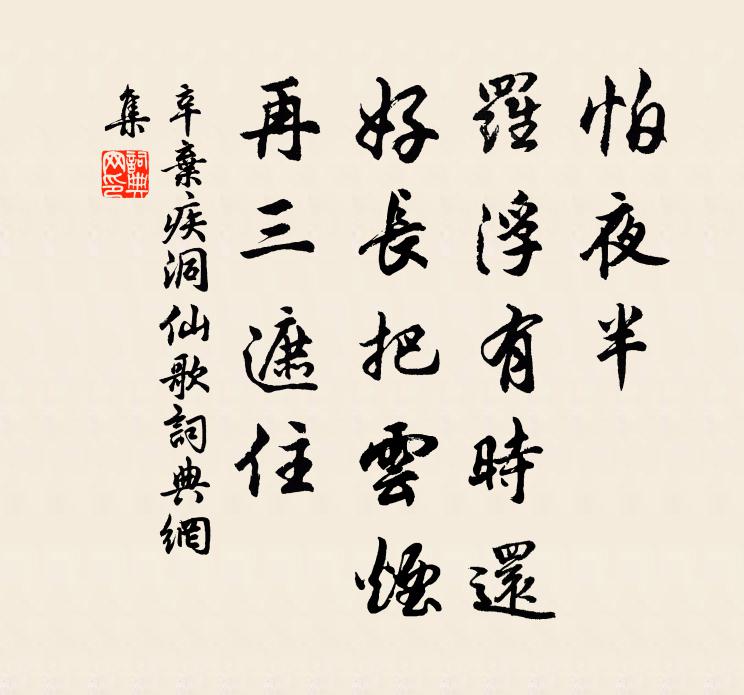 怕夜半
羅浮有時還
好長把雲煙
再三遮住
辛棄疾洞仙歌詞典網
集
詞典网印